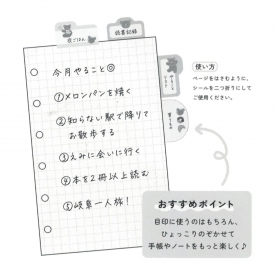 夜ごはん
読書記録
今月やること◎
①メロンパンを焼く
②知らない駅で降りて
お散歩する
③えみに会いに行く
④本を2冊以上読む
⑤岐阜一人旅!
使い方
ページをはさむように、
シールを二つ折りにして
ご使用ください。
おすすめポイント
目印に使うのはもちろん、
ひょっこりのぞかせて
手帳やノートをもっと楽しく♪